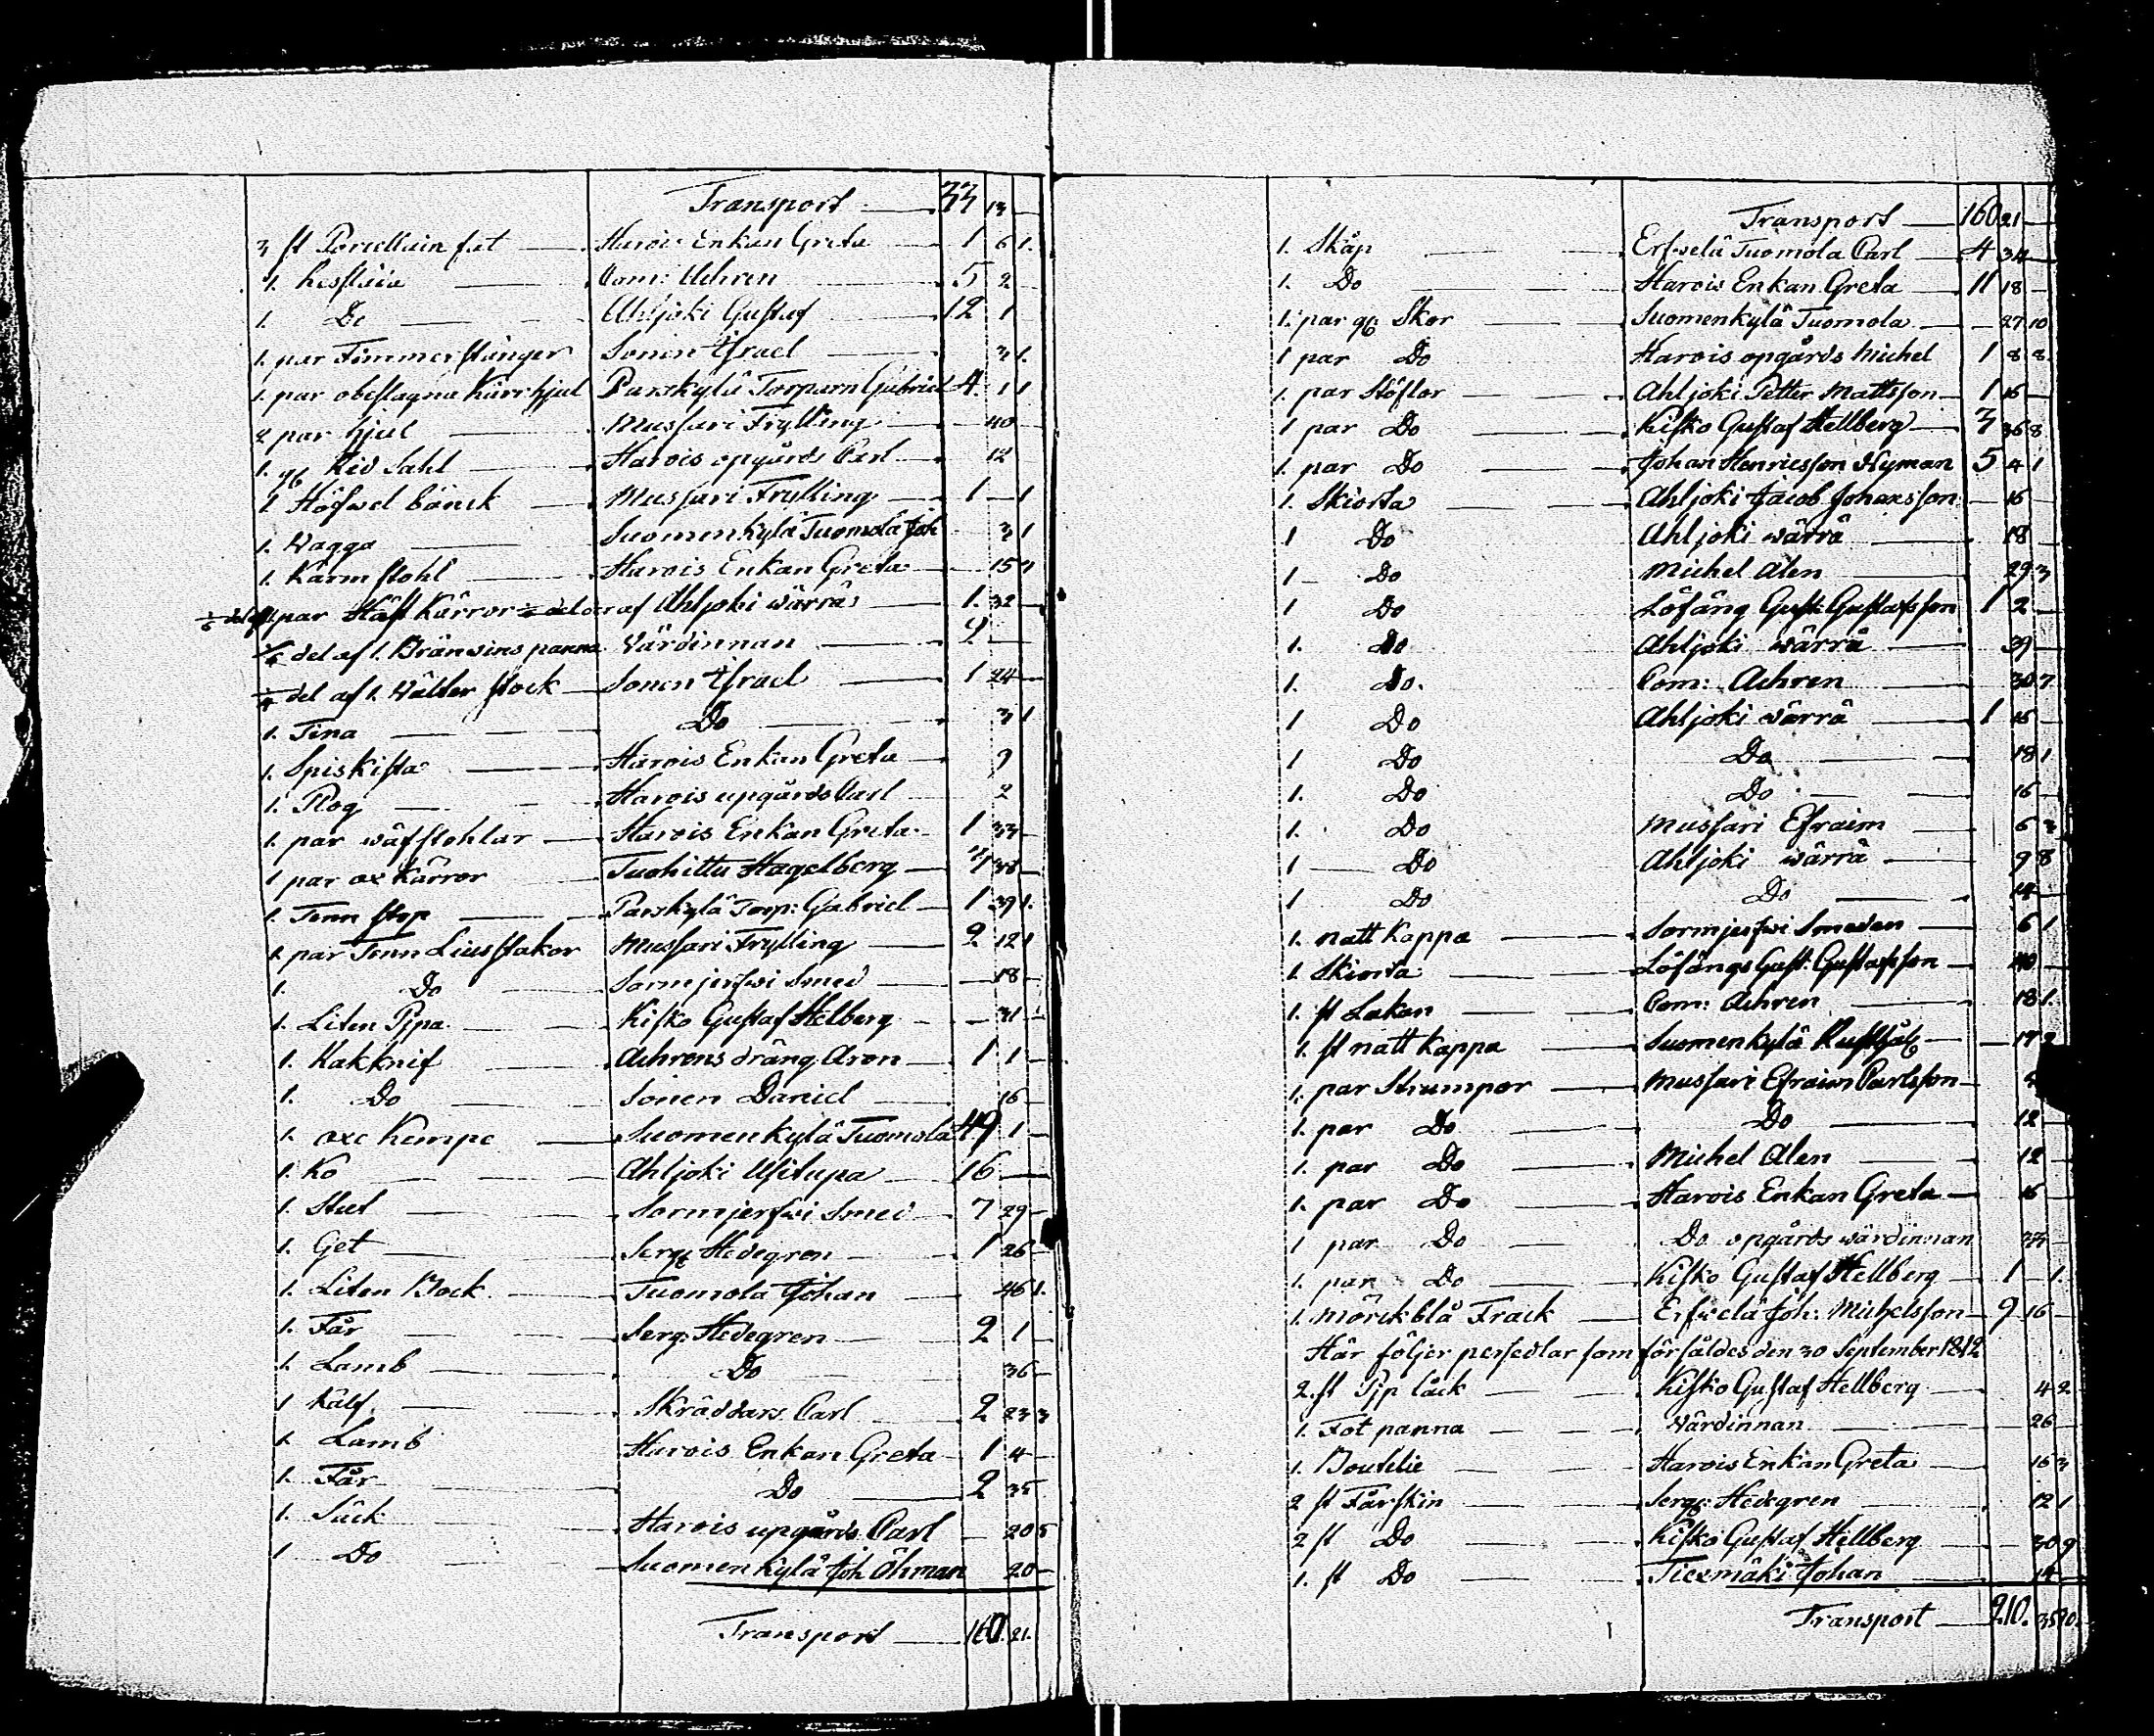 Transport — 33 13 —
3 st Porcellain fat — Harois Enkan Greta — 1 6 1.
1. — Com: Aehren — 5 2
1. Do — Ahljoki Gustaf — 12 1
1. par Timmer stänger Sonen Israel — 3 1.
1. par obeslagna Kärrhjul Parskylä Torparn Gabriel 4. 1 1
2 par hjul — Mussari Frylling — 40 —
1. gl Rid Sahl — Harois opgårds Carl — 12
1 Höfwel bänck — Mussari Frylling — 1 — 1
1. Wagga — Suomenkylä Tuomola Joh 3 1
1. Karmstohl — Harois Enkan Greta — 15
par Häst Kärror af Ahljoki wärrå — 1. 32 —
del af 1. Bränwins panna Värdinnan —
¼ del af 1. Wälter stock — Sonen Israel — 1 24 —
1. Tina — Do — 3 1
1. Spiskista — Harois Enkan Greta — 9
1. Plog — Harois upgårds Carl — 2
1. par wäfstohlar — Harois Enkan Greta — 1 33 —
1 par ox Kärror — Tuohittu Hagelberg — 7 38 —
1. Tenn stop — Parskylä Torp: Gabriel — 1 39 1.
1. par Tenn Liusstakar Mussari Frylling — 2 12 1
1. Do — Sormjerfwi Smed — 18 —
1. Liten Pipa — Kisko Gustaf Helberg — 31
1. Hakknif — Aehrens dräng Aron — 1 1 —
1. Do — Sonen Daniel — 16 —
1. oxe Kempe — Suomenkylä Tuomola 19 1 —
1. Ko — Ahljoki Usitupa — 16 —
1. Stut — Sormjerfwi Smed — 7 29 —
1. Get — Serg Hedegren — 1 26 —
1. Liten Bock — Tuomola Johan — 46 1.
1. Får — Serg: Hedegren — 2 1 —
1. Lamb — Do — 36 —
1 Kalf — Skräddars Carl — 2 23 3
1. Lamb — Harois Enkan Greta — 1 4 —
1. Får — Do — 2 35 —
1. Säck — Harois upgårds Carl — 20 5
1 Do — Suomenkylä Joh Öhman 20 —
Transport — 160. 21.
Transport — 160 21 —
1. Skåp — Erfwelä Tuomola Carl — 4 34 —
1. Do — Harois Enkan Greta — 11 18 —
1. par gl: Skor — Suomenkylä Tuomola — 27 10
1 par Do — Harois opgårds Michel 1 8 8.
1. par Stöflor — Ahljoki Petter Mattsson — 1 16 —
1 par Do — Kisko Gustaf Hellberg — 3 36 8
1. par Do — Johan Henricsson Nyman 5 4 1
1. Skiorta — Ahljoki Jacob Johansson — 16 —
1 Do Ahljoki wärrå — 18 —
1 — Do Michel Alen — 29 3
1 Do Löfäng Gust: Gustafsson 1 2 —
1. Do Ahljoki wärrå — 39 —
1. Do. Com: Aehren — 30 7
1 Do Ahljoki wärrå — 1 16 —
1 Do Do — 18 1
1. Do Do — 16 —
1. Do Mussari Efraim — 6 3
1 — Do Ahljoki wärrå — 9 8
1 Do Do — 14 —
1. natt Kappa — Sormjerfwi Smeden — 6 1
1. Skiorta — Löfängs Gust: Gustafsson — 40 —
1. st Lakan — Com: Aehren — 18 1.
1. st natt Kappa — Suomenkylä
1. par Strumpor — Mussari Efraim Carlsson —
1. par Do — Do — 12 —
1. par Do — Michel Alen — 12 —
1. par Do — Harois Enkan Greta — 16 —
1 par Do — Do opgårds wärdinnan 33 —
1. par Do — Kisko Gustaf Hellberg — 1 — 1.
1. mörckblå Frack — Erfwelä Joh: Michelsson — 9 16 —
Här följer persedlar som försåldes den 30 September 1812
2. st Pip låck — Kisko Gustaf Hellberg — 4 2
1. Fot panna — Wärdinnan — 26 —
1. Boutelie — Harois Enkan Greta — 16 3
2 st Fårskin — Serg: Hedegren — 12 1
2 st Do — Kisko Gustaf Hellberg — 30 9
1. st Do — Johan — 14 —
Transport — 210. 35 10.